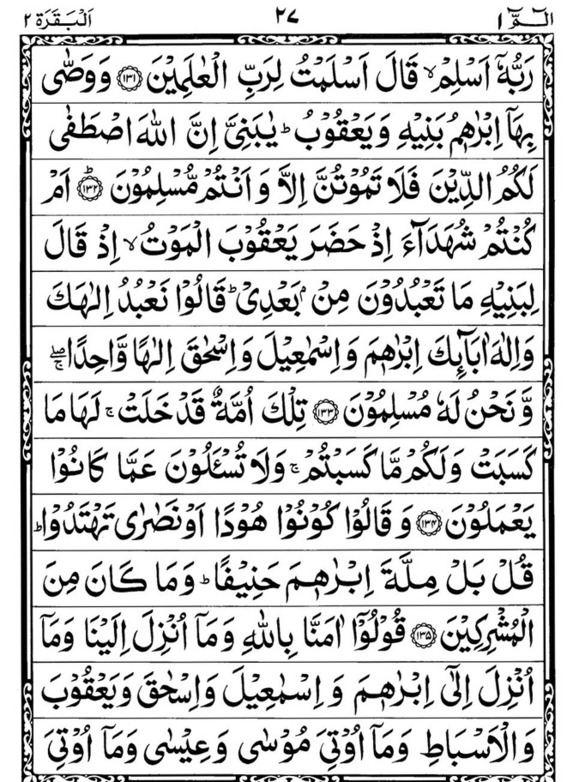 الٓمّٓ ١ ٢٧ اَلْبَقَرَة ٢
رَبُّهٗۤ اَسْلِمْ ۙ قَالَ اَسْلَمْتُ لِرَبِّ الْعٰلَمِیْنَ ﴿۱۳۱﴾ وَ وَصّٰی
بِهَاۤ اِبْرٰهٖمُ بَنِیْهِ وَ یَعْقُوْبُ ؕ یٰبَنِیَّ اِنَّ اللّٰهَ اصْطَفٰی
لَكُمُ الدِّیْنَ فَلَا تَمُوْتُنَّ اِلَّا وَ اَنْتُمْ مُّسْلِمُوْنَ ﴿۱۳۲﴾ؕ اَمْ
كُنْتُمْ شُهَدَآءَ اِذْ حَضَرَ یَعْقُوْبَ الْمَوْتُ ۙ اِذْ قَالَ
لِبَنِیْهِ مَا تَعْبُدُوْنَ مِنْۢ بَعْدِیْ ؕ قَالُوْا نَعْبُدُ اِلٰهَكَ
وَ اِلٰهَ اٰبَآىِٕكَ اِبْرٰهٖمَ وَ اِسْمٰعِیْلَ وَ اِسْحٰقَ اِلٰهًا وَّاحِدًا ۖۚ
وَّ نَحْنُ لَهٗ مُسْلِمُوْنَ ﴿۱۳۳﴾ تِلْكَ اُمَّةٌ قَدْ خَلَتْ ۚ لَهَا مَا
كَسَبَتْ وَ لَكُمْ مَّا كَسَبْتُمْ ۚ وَ لَا تُسْـَٔلُوْنَ عَمَّا كَانُوْا
یَعْمَلُوْنَ ﴿۱۳۴﴾ وَ قَالُوْا كُوْنُوْا هُوْدًا اَوْ نَصٰرٰی تَهْتَدُوْا ؕ
قُلْ بَلْ مِلَّةَ اِبْرٰهٖمَ حَنِیْفًا ؕ وَ مَا كَانَ مِنَ
الْمُشْرِكِیْنَ ﴿۱۳۵﴾ قُوْلُوْۤا اٰمَنَّا بِاللّٰهِ وَ مَاۤ اُنْزِلَ اِلَیْنَا وَ مَاۤ
اُنْزِلَ اِلٰۤی اِبْرٰهٖمَ وَ اِسْمٰعِیْلَ وَ اِسْحٰقَ وَ یَعْقُوْبَ
وَ الْاَسْبَاطِ وَ مَاۤ اُوْتِیَ مُوْسٰی وَ عِیْسٰی وَ مَاۤ اُوْتِیَ